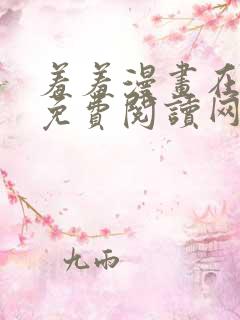 羞羞漫畫在
免費閱讀网
九雨